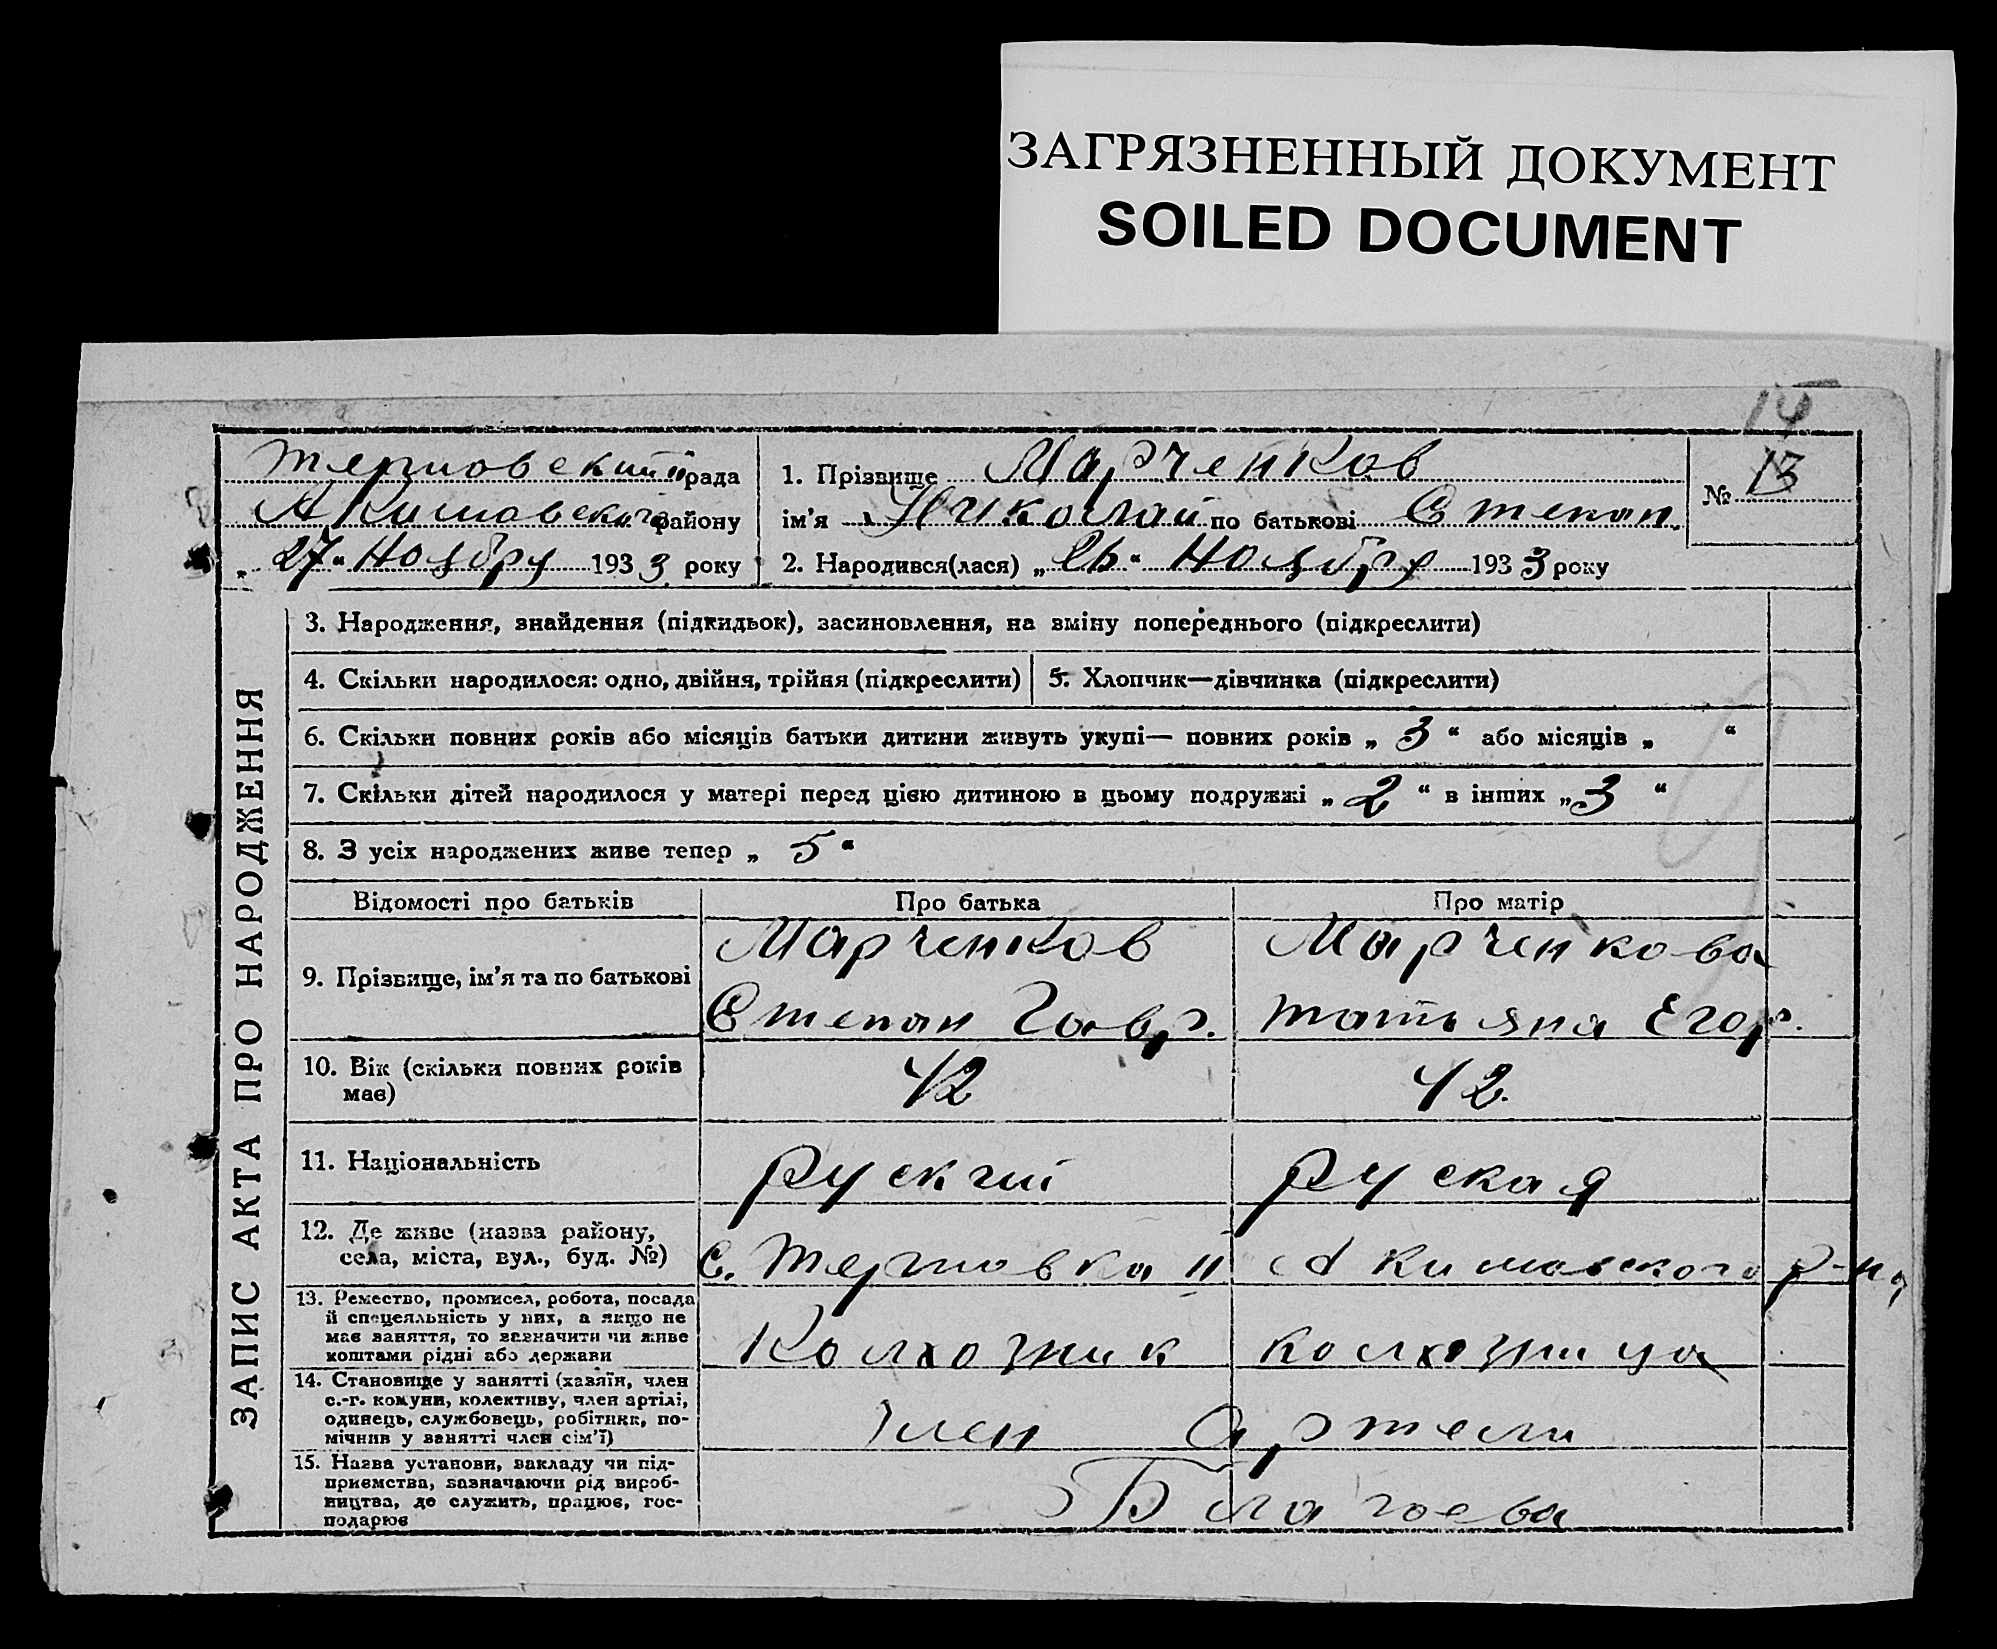 ЗАГРЯЗНЕННЫЙ ДОКУМЕНТ
SOILED DOCUMENT
14
Терновский II рада
Акимовского району
„27“ Ноября 1933 року
1. Прізвище Марченков
ім’я Николай по батькові Степан.
2. Народився(лася) „26“ Ноября 1933 року
№ 13
ЗАПИС АКТА ПРО НАРОДЖЕННЯ
3. Народження, знайдення (підкидьок), засиновлення, на вміну попереднього (підкреслити)
4. Скільки народилося: одно, двійня, трійня (підкреслити)
5. Хлопчик—дівчинка (підкреслити)
6. Скільки повних років або місяців батьки дитини живуть укупі— повних років „ 3 “ або місяців „ “
7. Скільки дітей народилося у матері перед цією дитиною в цьому подружжі „ 2 “ в інших „ 3 “
8. З усіх народжених живе тепер „ 5 “
Відомості про батьків Про батька Про матір
9. Прізвище, ім’я та по батькові
Марченков
Степан Гавр.
Марченкова
Татьяна Егор.
10. Вік (скільки повних років
має)
42
42.
11. Національність
руский
руская
12. Де живе (назва району,
села, міста, вул., буд. №)
С. Терновка II Акимовского р-на
13. Ремество, промисел, робота, посада
й спецеяльність у них, а якщо не
має заняття, то зазначити чи живе
коштами рідні або держави
Колхозник
колхозница
14. Становище у занятті (хазяїн, член
с.-г. комуни, колективу, член артілі,
одинець, службовець, робітник, по-
мічник у занятті член сім’ї)
член Артели
15. Назва установи, закладу чи під-
приємства, зазначаючи рід вироб-
ництва, де служить, працює, гос-
подарює
Благоева